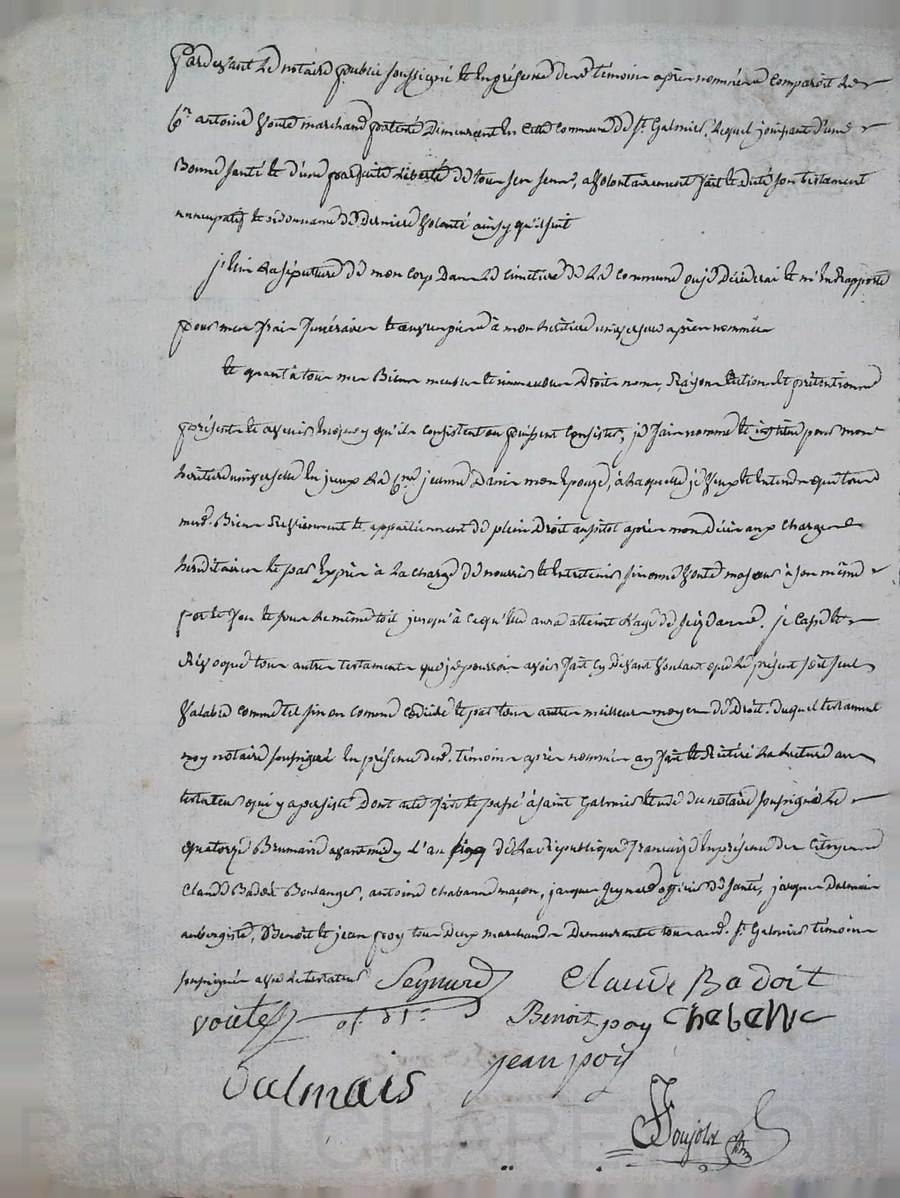 Pardevant le notaire public soussigné et en présence des témoins après nommés comparoit le
Cn antoine Voute marchand patenté demeurant en cette commune de St Galmier, lequel jouissant d'une
Bonne santé et d'une parfaite liberté de tous ses sens, a volontairement fait et dicté son testament
nuncupatif et ordonnance de derniere volonté ainsy qu'il suit
j'elis la sépulture de mon corps dans le cimetiere de la commune ou je décéderai et m'en rapporte
pour mes frais funéraires et œuvres pies à mon heritiere universelle après nommée
et quant à tous mes Biens meubles et immeubles droits noms, Raisons actions et prétentions
présents et avenir en quoy qu'ils consistent ou puissent consister, je fais nomme et institue pour mon
heritiere universelle la Cne jeanne mon epouze, à laquelle je veux et entends que tous
mes Biens Reviennent et appartiennent de plein droit aussitot après mon décès aux charges
héréditaires et par exprès à la charge de nourrir et entretenir Voute à son même
pot et feu et sous le même toit jusqu'à ce qu'elle aura atteint l'age de ans. je casse et
Révoque tous autres testaments que je pourrois avoir fait cy devant voulant que le présent soit seul
Valable comme tel sinon comme codicile et par tout autre meilleur moyen de droit. duquel testament
moy notaire soussigné en présence des témoins après nommés ay fait et Réitéré la lecture au
testateur qui y a persisté dont acte fait et passé à saint Galmier étude du notaire soussigné le
quatorze Brumaire avant midy l'an de la république française en présence des Citoyens
Claude Badoit Boulanger, antoine Chabanne maçon, jacques Seynard officier de santé, jacques Dalmais
aubergiste, Benoit et jean poy tous deux marchands demeurants tous aud. St Galmier témoins
soussignés avec le testateur Seynard Claude Badoit
voute of. d. s. Benoit poy
jean poy
Dalmais
Poujola
Pascal CHARETRON